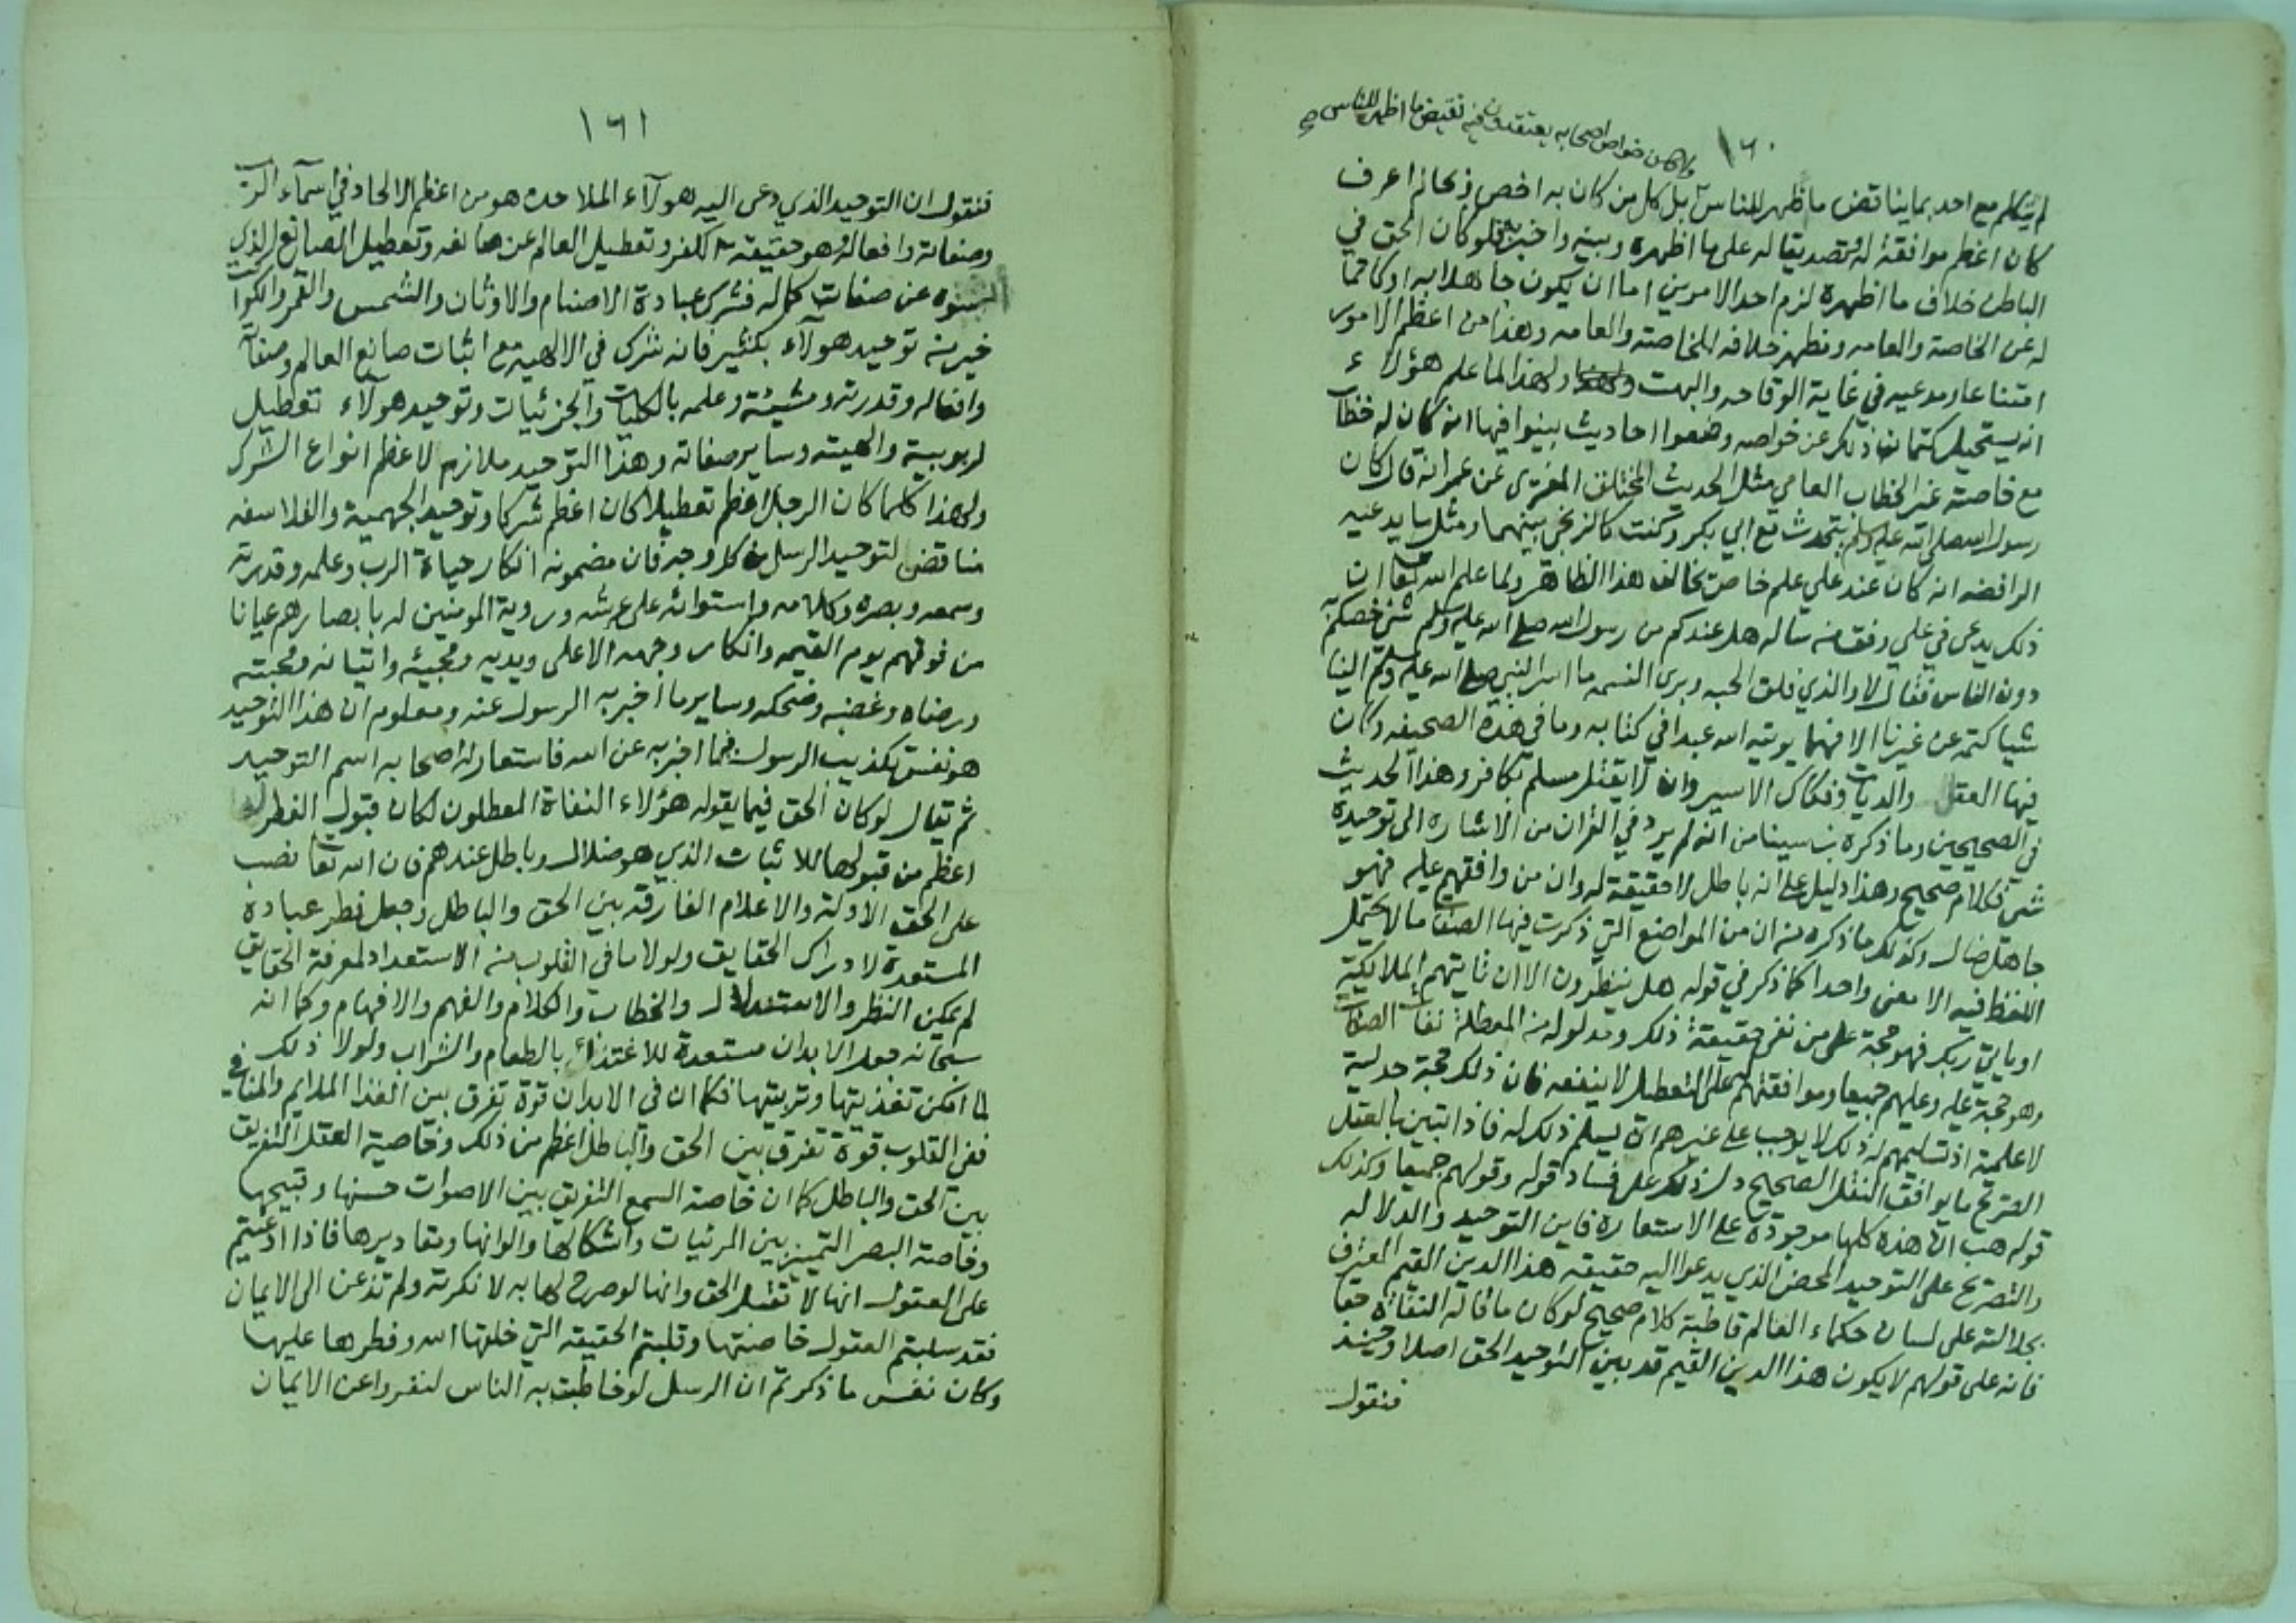 ١٦٠
ولا كان خواص اصحابه يعتقدون فيه نقيض ما اظهر للناس صح
لم يتكلم مع احد بما يناقض ما ظهر للناس بل كل من كان به اخص وبحاله اعرف
كان اعظم موافقة له وتصديقا له على ما اظهره وبينه واخبر به فلو كان الحق في
الباطن خلاف ما اظهره لزم احد الامرين اما ان يكون جاهلا به او كاتما
له عن الخاصة والعامه ومظهر خلافه للخاصة والعامه وهذا من اعظم الامور
امتناعا ومدعيه في غاية الوقاحه والبهت ولهذا لما علم هؤلاء
انه يستحيل كتمان ذلك عن خواصه وضعوا احاديث بينوا فيها انه كان له خطاب
مع خاصته غير الخطاب العامي مثل الحديث المختلق المفترى عن عمر انه قال كان
رسول الله صلى الله عليه وسلم يتحدث مع ابي بكر وكنت كالزنجي بينهما ومثل ما يدعيه
الرافضه انه كان عند علي علم خاص يخالف هذا الظاهر ولما علم الله تعالى ان
ذلك يدعى في علي وفق من سأله هل عندكم من رسول الله صلى الله عليه وسلم شئ خصكم به
دون الناس فقال لا والذي فلق الحبه وبرى النسمه ما اسر النبي صلى الله عليه وسلم الينا
شيا كتمه عن غيرنا الا فهما يوتيه الله عبدا في كتابه وما في هذه الصحيفه وكان
فيها العقل والديات وفكاك الاسير وان لا يقتل مسلم بكافر وهذا الحديث
في الصحيحين وما ذكره بن سينا من انه لم يرد في القران من الاشاره الى توحيده
شئ فكلام صحيح وهذا دليل على انه باطل لا حقيقة له وان من وافقهم عليه فهو
جاهل ضال وكذلك ما ذكره من ان من المواضع التي ذكرت فيها الصفات ما لا يحتمل
اللفظ فيه الا معنى واحدا كما ذكر في قوله هل ينظرون الا ان تاتيهم الملايكة
او ياتي ربك فهو حجة على من نفى حقيقة ذلك ومدلوله من المعطلة نفات الصفات
وهو حجة عليه وعليهم جميعا وموافقتهم له على التعطيل لا ينفعه فان ذلك حجة جدلية
لا علمية اذ تسليمهم له ذلك لا يوجب على غيرهم ان يسلم ذلك له فاذا تبين بالعقل
الصريح ما يوافق النقل الصحيح دل ذلك على فساد قوله وقولهم جميعا وكذلك
قوله هب ان هذه كلها موجودة على الاستعاره فاين التوحيد والدلاله
والتصريح على التوحيد المحض الذي يدعو اليه حقيقة هذا الدين القيم المعترف
بجلالته على لسان حكماء العالم قاطبة كلام صحيح لو كان ما قاله النفاة حقا
فانه على قولهم لا يكون هذا الدين القيم قد بين التوحيد الحق اصلا وحينئذ
فنقول
١٦١
فنقول ان التوحيد الذي دعى اليه هولآء الملاحده هو من اعظم الالحاد في اسمآء الرب
وصفاته وافعاله وهو حقيقة الكفر وتعطيل العالم عن صانعه وتعطيل الصانع الذي
اثبتوه عن صفات كماله فشرك عبادة الاصنام والاوثان والشمس والقمر والكواكب
خير من توحيد هولآء بكثير فانه شرك في الالهية مع اثبات صانع العالم وصفاته
وافعاله وقدرته ومشيئته وعلمه بالكليات والجزئيات وتوحيد هولآء تعطيل
لربوبيته والهيته وساير صفاته وهذا التوحيد ملازم لاعظم انواع الشرك
ولهذا كلما كان الرجل اعظم تعطيلا كان اعظم شركا وتوحيد الجهمية والفلاسفه
مناقض لتوحيد الرسل من كل وجه فان مضمونه انكار حياة الرب وعلمه وقدرته
وسمعه وبصره وكلامه واستوائه على عرشه وروية المومنين له بابصارهم عيانا
من فوقهم يوم القيمه وانكار وجهه الاعلى ويديه ومجيئه واتيانه ومحبته
ورضاه وغضبه وضحكه وساير ما اخبر به الرسول عنه ومعلوم ان هذا التوحيد
هو نفس تكذيب الرسول فيما اخبر به عن الله فاستعار له اصحابه اسم التوحيد
ثم يقال لو كان الحق فيما يقوله هؤلاء النفاة المعطلون لكان قبول الفطر له
اعظم من قبولها للاثبات الذي هو ضلال وباطل عندهم فان الله تعالى نصب
على الحق الادلة والاعلام الفارقة بين الحق والباطل وجعل فطر عباده
المستعدة لادراك الحقايق ولولا ما في القلوب من الاستعداد لمعرفة الحقايق
لم يمكن النظر والاستدلال والخطاب والكلام والفهم والافهام وكما انه
سبحانه جعل الابدان مستعدة للاغتذاء بالطعام والشراب ولولا ذلك
لما امكن تغذيتها وتربيتها فكما ان في الابدان قوة تفرق بين الغذا الملايم والمنافي
ففي القلوب قوة تفرق بين الحق والباطل اعظم من ذلك وخاصية العقل التفريق
بين الحق والباطل كما ان خاصة السمع التفريق بين الاصوات حسنها وقبيحها
وخاصة البصر التمييز بين المرئيات واشكالها والوانها ومقاديرها فاذا ادعيتم
على العقول انها لا تقبل الحق وانها لو صرح لها به لانكرته ولم تذعن الى الايمان
فقد سلبتم العقول خاصتها وقلبتم الحقيقه التي خلقها الله وفطرها عليها
وكان نفس ما ذكرتم ان الرسل لو خاطبت به الناس لنفروا عن الايمان